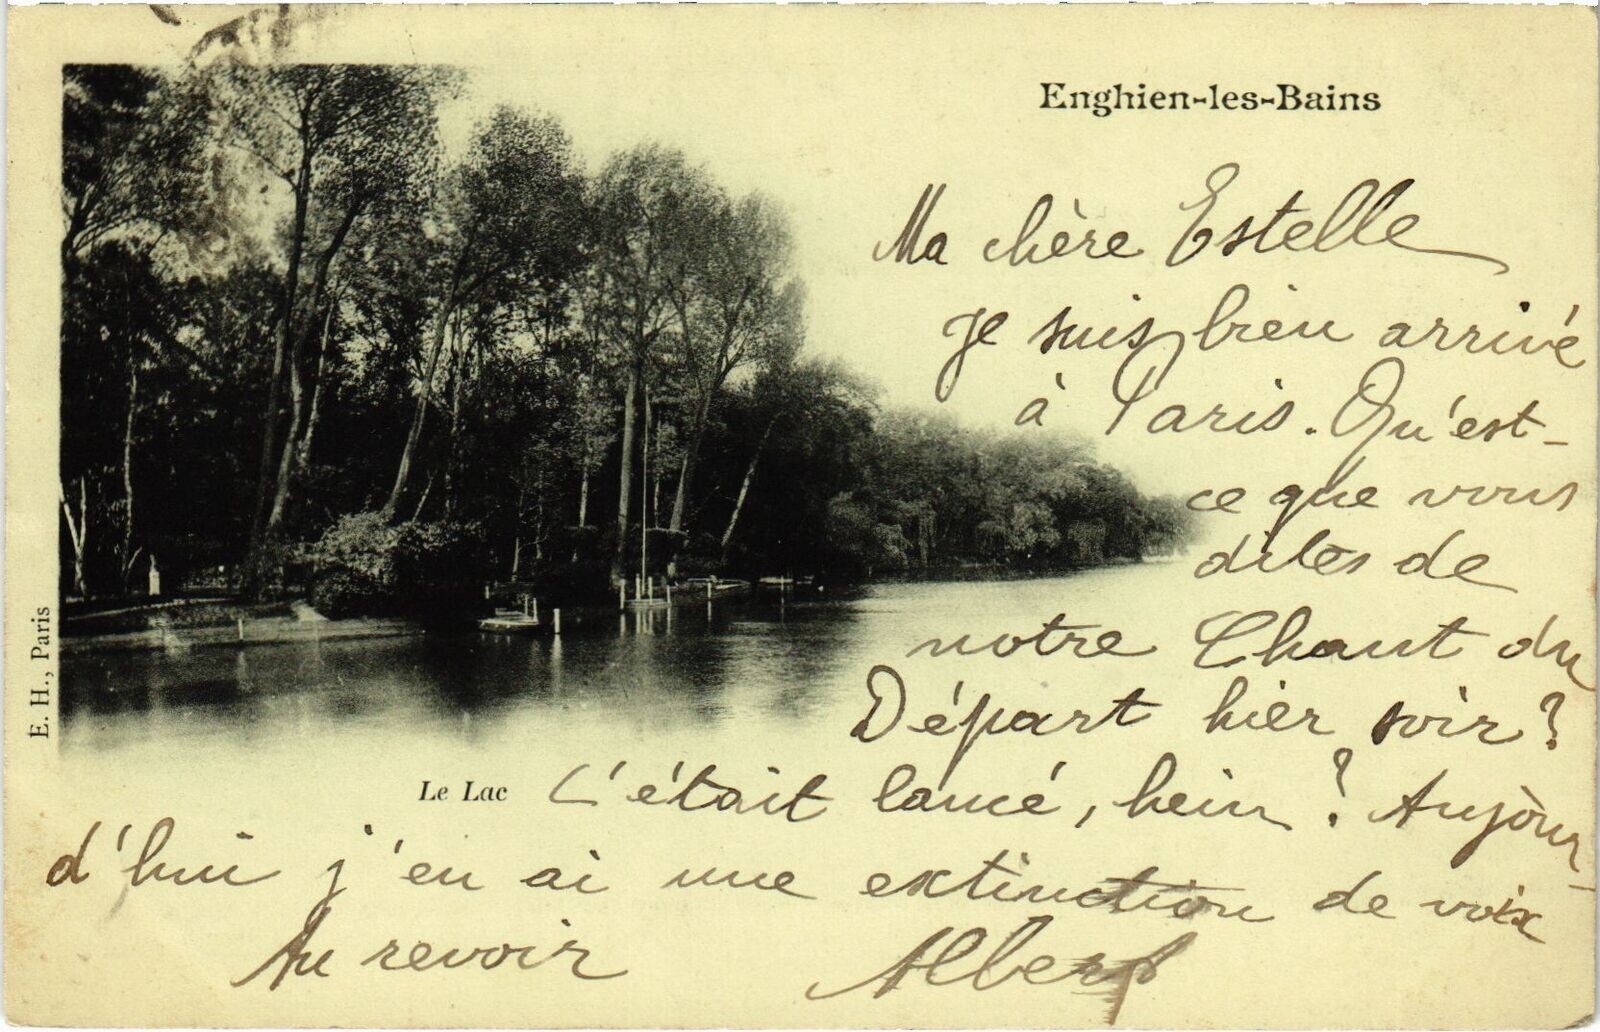 Enghien-les-Bains
Ma chère Estelle
Je suis bien arrivé
à Paris. Qu'est-
ce que vous
dites de
notre Chant du
Départ hier soir ?
C'était lancé, hein ? Aujour-
d'hui j'en ai une extinction de voix
Au revoir Albert
Le Lac
E. H., Paris